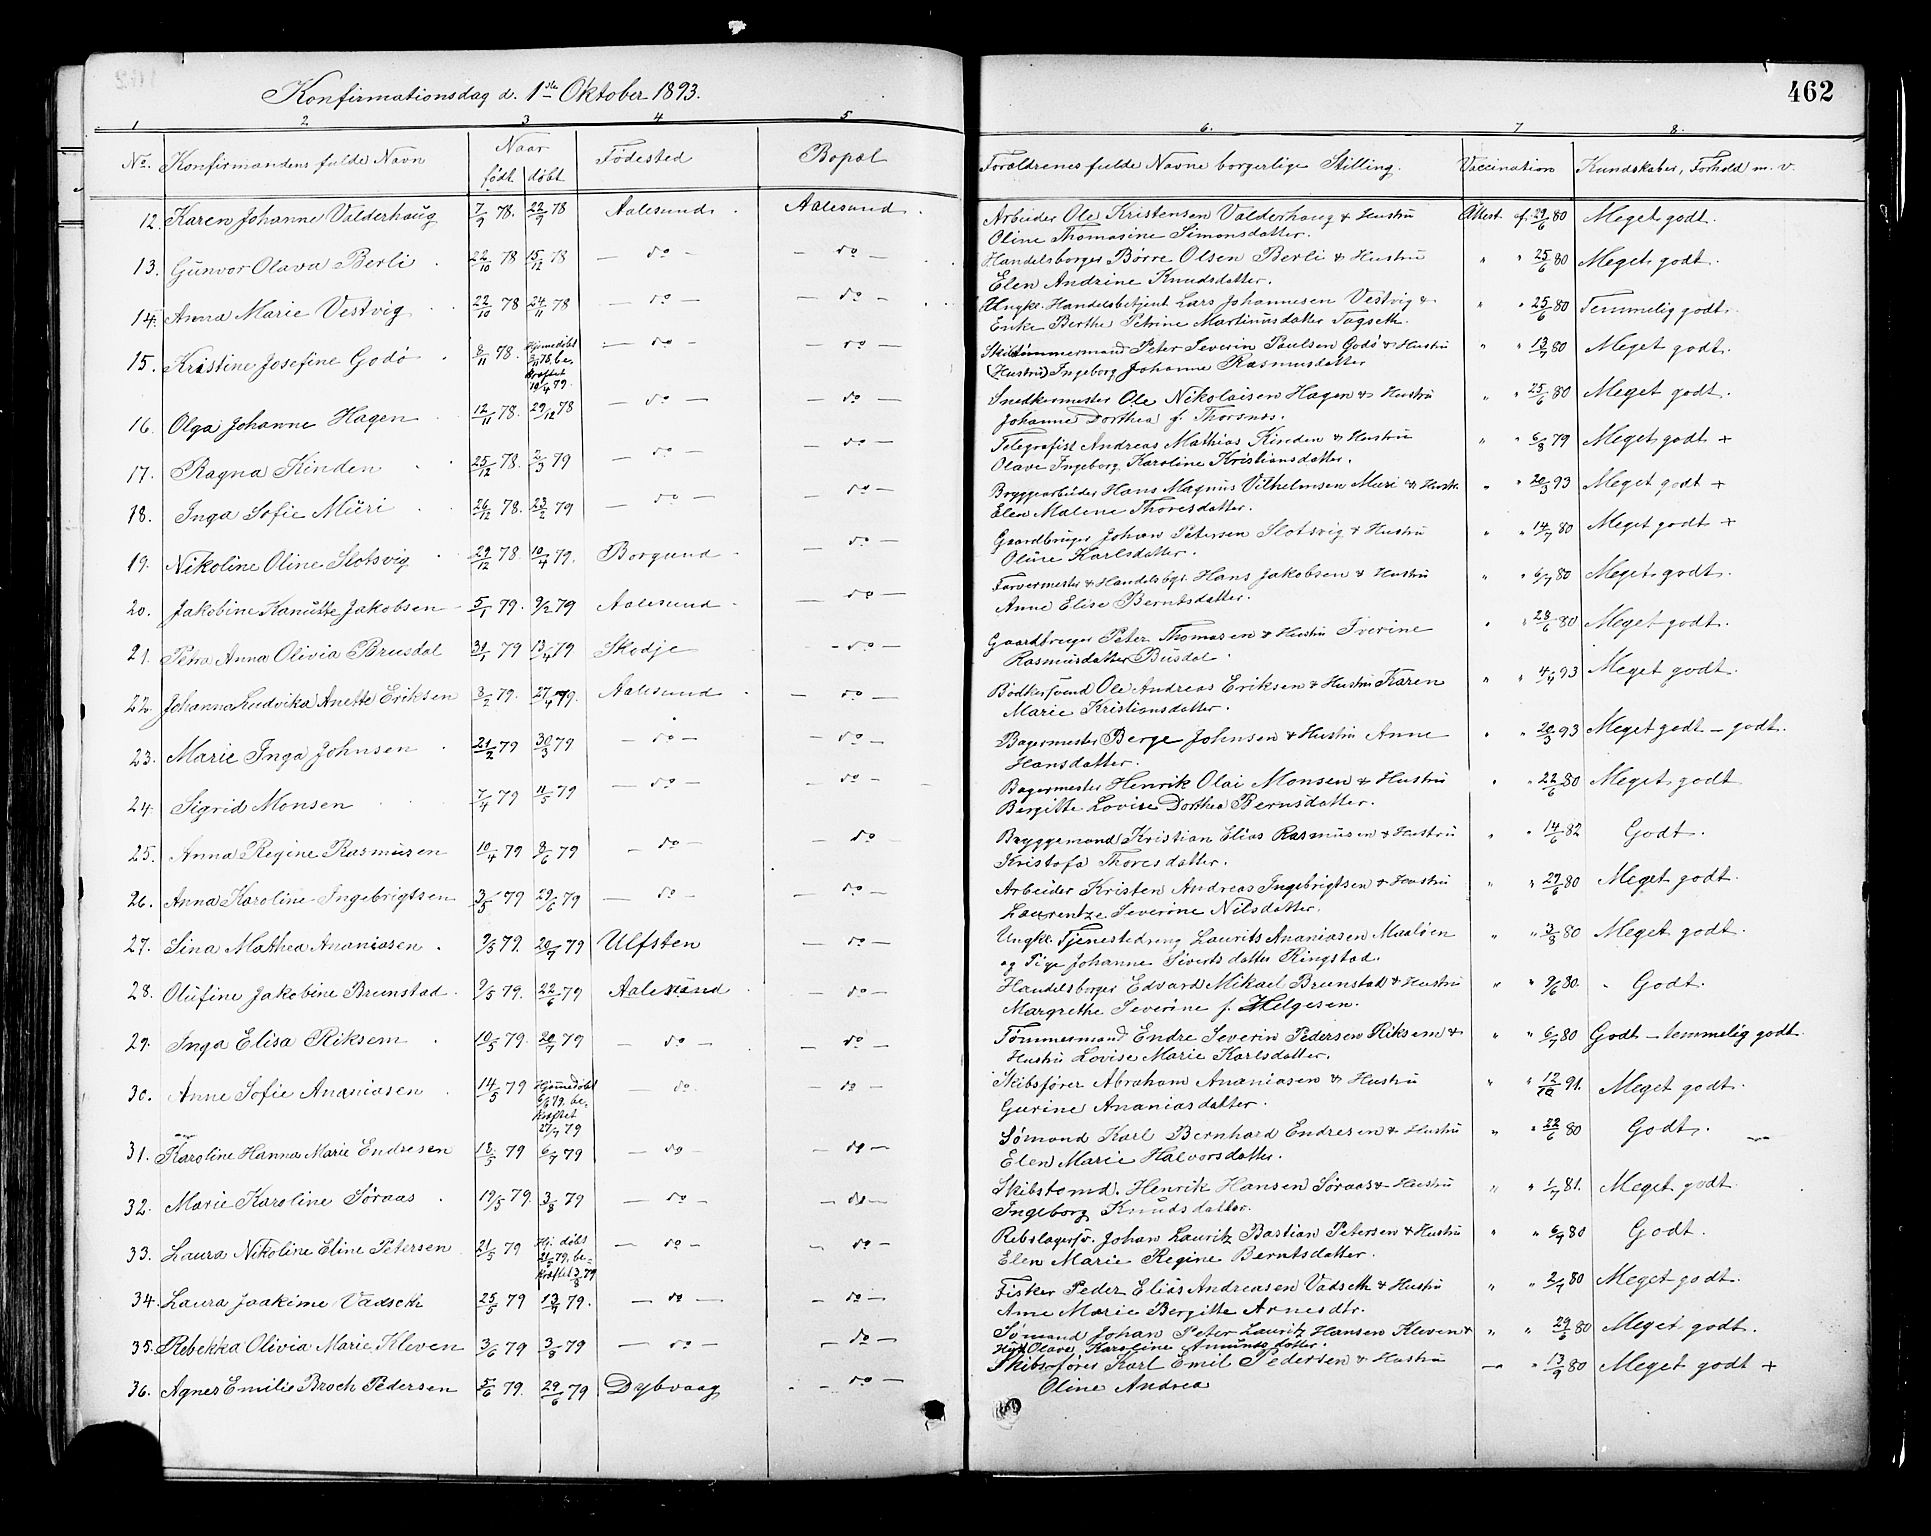 Konfirmationsdag d. 1ste Oktober 1893.
462
1 2 3 4 5 6. 7 8.
No. Konfirmandens fulde Navn Naar født døbt Fødested Bopæl Forældrenes fulde Navne borgerlige Stilling. Vaccination Kundskaber, Forhold m. v.
12. Karen Johanne Valderhaug 7/9 78. 22/9 78 Aalesund Aalesund. Arbeider Ole Kristensen Valderhaug & Hustru Attest af 29/6 80 Meget godt.
Oline Thomasine Simonsdatter.
13. Gunvor Olava Berli 22/10 78 15/12 78 — do — — do — Handelsborger Børre Olsen Berli & Hustru " " 25/6 80 Meget godt.
Elen Andrine Knudsdatter.
14. Anna Marie Vestvig 22/10 78 24/11 78 — do — — do — Ungk. Handelsbetjent Lars Johannesen Vestvig & " " 25/6 80 Temmelig godt.
Enke Berthe Petrine Martinusdatter Tagseth.
15. Kristine Josefine Godø 8/11 78. Hjemmedøbt 78, be-kræftet 10/4 79. — do — — do — Skibtømmermand Peter Severin Paulsen Godø & Hustru " " 13/7 80 Meget godt.
(Hustru) Ingeborg Johanne Rasmusdatter
16. Olga Johanne Hagen 12/11 78. 29/12 78 — do — — do — Snedkermester Ole Nikolaisen Hagen & Hustru " " 25/6 80 Meget godt.
Johanne Dorthea f. Thorsnes.
17. Ragna Kinden 25/12 78. 2/3 79 — do — — do — Telegrafist Andreas Mathias Kinden & Hustru " " 6/8 79 Meget godt +
Olave Ingeborg Karoline Kristiansdatter.
18. Inga Sofie Muri 26/12 78. 23/2 79 — do — — do — Bryggearbeider Hans Magnus Vilhelmsen Muri & Hustr. " " 20/3 93 Meget godt +
Elen Malene Thoresdatter.
19. Nikoline Oline Slotsvig 29/12 78. 10/4 79. Borgund — do — Gaardbruger Johan Petersen Slotsvig & Hustru " " 14/7 80 Meget godt +
Oline Karlsdatter.
20. Jakobine Kanutte Jakobsen 5/1 79. 9/2 79 Aalesund — do — Farvermester & Handelsbgr. Hans Jakobsen & Hustru " " 6/7 80 Meget godt.
Anne Elise Berntsdatter.
21. Petra Anna Olivia Brusdal 31/1 79 13/4 79 Skodje — do — Gaardbruger Peter Thomasen & Hustru Iverine " " 28/6 80 Meget godt.
Rasmusdatter Busdal.
22. Johanna Ludvika Anette Eriksen 3/2 79. 27/4 79. Aalesund — do — Bødkersvend Ole Andreas Eriksen & Hustru Karen " " 4/4 93 Meget godt.
Marie Kristiansdatter.
23. Marie Inga Johnsen 21/2 79 30/3 79 — do — — do — Bagermester Berge Johnsen & Hustru Anne " " 20/3 93 Meget godt — godt.
Hansdatter.
24. Sigrid Monsen 7/4 79 11/5 79 — do — — do — Bagermester Henrik Olai Monsen & Hustru " " 22/6 80 Meget godt
Bergitte Lovise Dorthea Bernsdatter.
25. Anna Regine Rasmusen 10/4 79 8/6 79 — do — — do — Bryggemand Kristian Elias Rasmusen & Hustru " " 14/6 82 Godt.
Kristofa Thoresdatter.
26. Anna Karoline Ingebrigtsen 3/5 79 29/6 79 — do — — do — Arbeider Kristen Andreas Ingebrigtsen & Hustru " " 29/6 80 Meget godt.
Laurentze Severine Nilsdatter.
27. Sina Mathea Ananiasen 9/5 79. 20/7 79 Ulfsten — do — Ungk. Tjenestedreng Laurits Ananiasen Maaløen " " 3/8 80 Meget godt.
og Pige Johanne Siverts datter Ringstad.
28. Olufine Jakobine Brunstad 9/5 79. 22/6 79 Aalesund — do — Handelsborger Edvard Mikael Brunstad & Hustru " " 9/6 80. Godt.
Margrethe Severine f. Helgesen.
29. Inga Elisa Riksem 10/5 79. 20/7 79 — do — — do — Tømmermand Endre Severin Pedersen Riksem & " " 6/7 80 Godt — temmelig godt
Hustru Lovise Marie Karlsdatter.
30. Anne Sofie Ananiasen 14/5 79 Hjemmedøbt 6/6 79, be-kræftet 27/7 79 — do — — do — Skibsfører Abraham Ananiasen & Hustru " " 12/12 91. Meget godt.
Gurine Ananiasdatter.
31. Karoline Hanna Marie Endresen 18/5 79 6/7 79 — do — — do — Sømand Karl Bernhard Endresen & Hustru " " 22/6 80 Godt.
Elen Marie Halvorsdatter.
32. Marie Karoline Søraas 19/5 79. 3/8 79 — do — — do — Skibstømd. Henrik Hansen Søraas & Hustru " " 1/7 81. Meget godt
Ingeborg Knudsdatter.
33. Laura Nikoline Eline Petersen 21/5 79 Hj. døbt 21/5 79, be-kræftet 3/8 79 — do — — do — Rebslagersv. Johan Lauritz Bastian Petersen & Hustru " " 6/7 80 Godt.
Elen Marie Regine Berntsdatter.
34. Laura Joakime Vadseth 25/5 79 13/7 79. — do — — do — Fisker Peder Elias Andreasen Vadseth & Hustru " " 2/7 80 Meget godt.
Ane Marie Bergitte Arnesdtr.
35. Rebekka Olivia Marie Kleven 3/6 79 3/8 79 — do — — do — Sømand Johan Peter Lauritz Hansen Kleven & " " 29/6 80 Meget godt.
Hust. Olave Karoline Amundsdatter.
36. Agnes Emilie Broch Pedersen 5/6 79. 29/6 79 Dybvaag — do — Skibsfører Karl Emil Pedersen & Hustru — " 13/9 80 Meget godt +
Oline Andrea